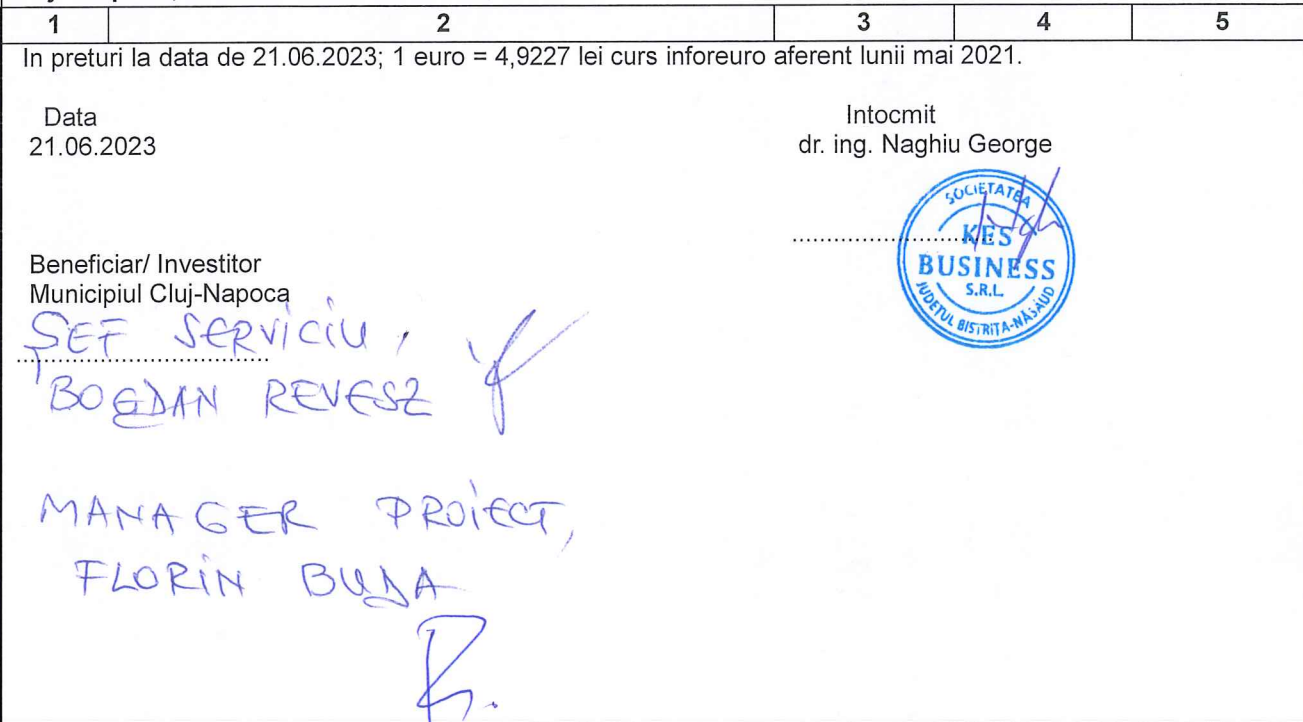 1 2 3 4 5
In preturi la data de 21.06.2023; 1 euro = 4,9227 lei curs inforeuro aferent lunii mai 2021.
Data
21.06.2023
Intocmit
dr. ing. Naghiu George
SOCIETATEA
KES
BUSINESS
S.R.L.
JUDEȚUL BISTRIȚA-NĂSĂUD
Beneficiar/ Investitor
Municipiul Cluj-Napoca
ȘEF SERVICIU,
BOGDAN REVESZ
MANAGER PROIECT,
FLORIN BUDA